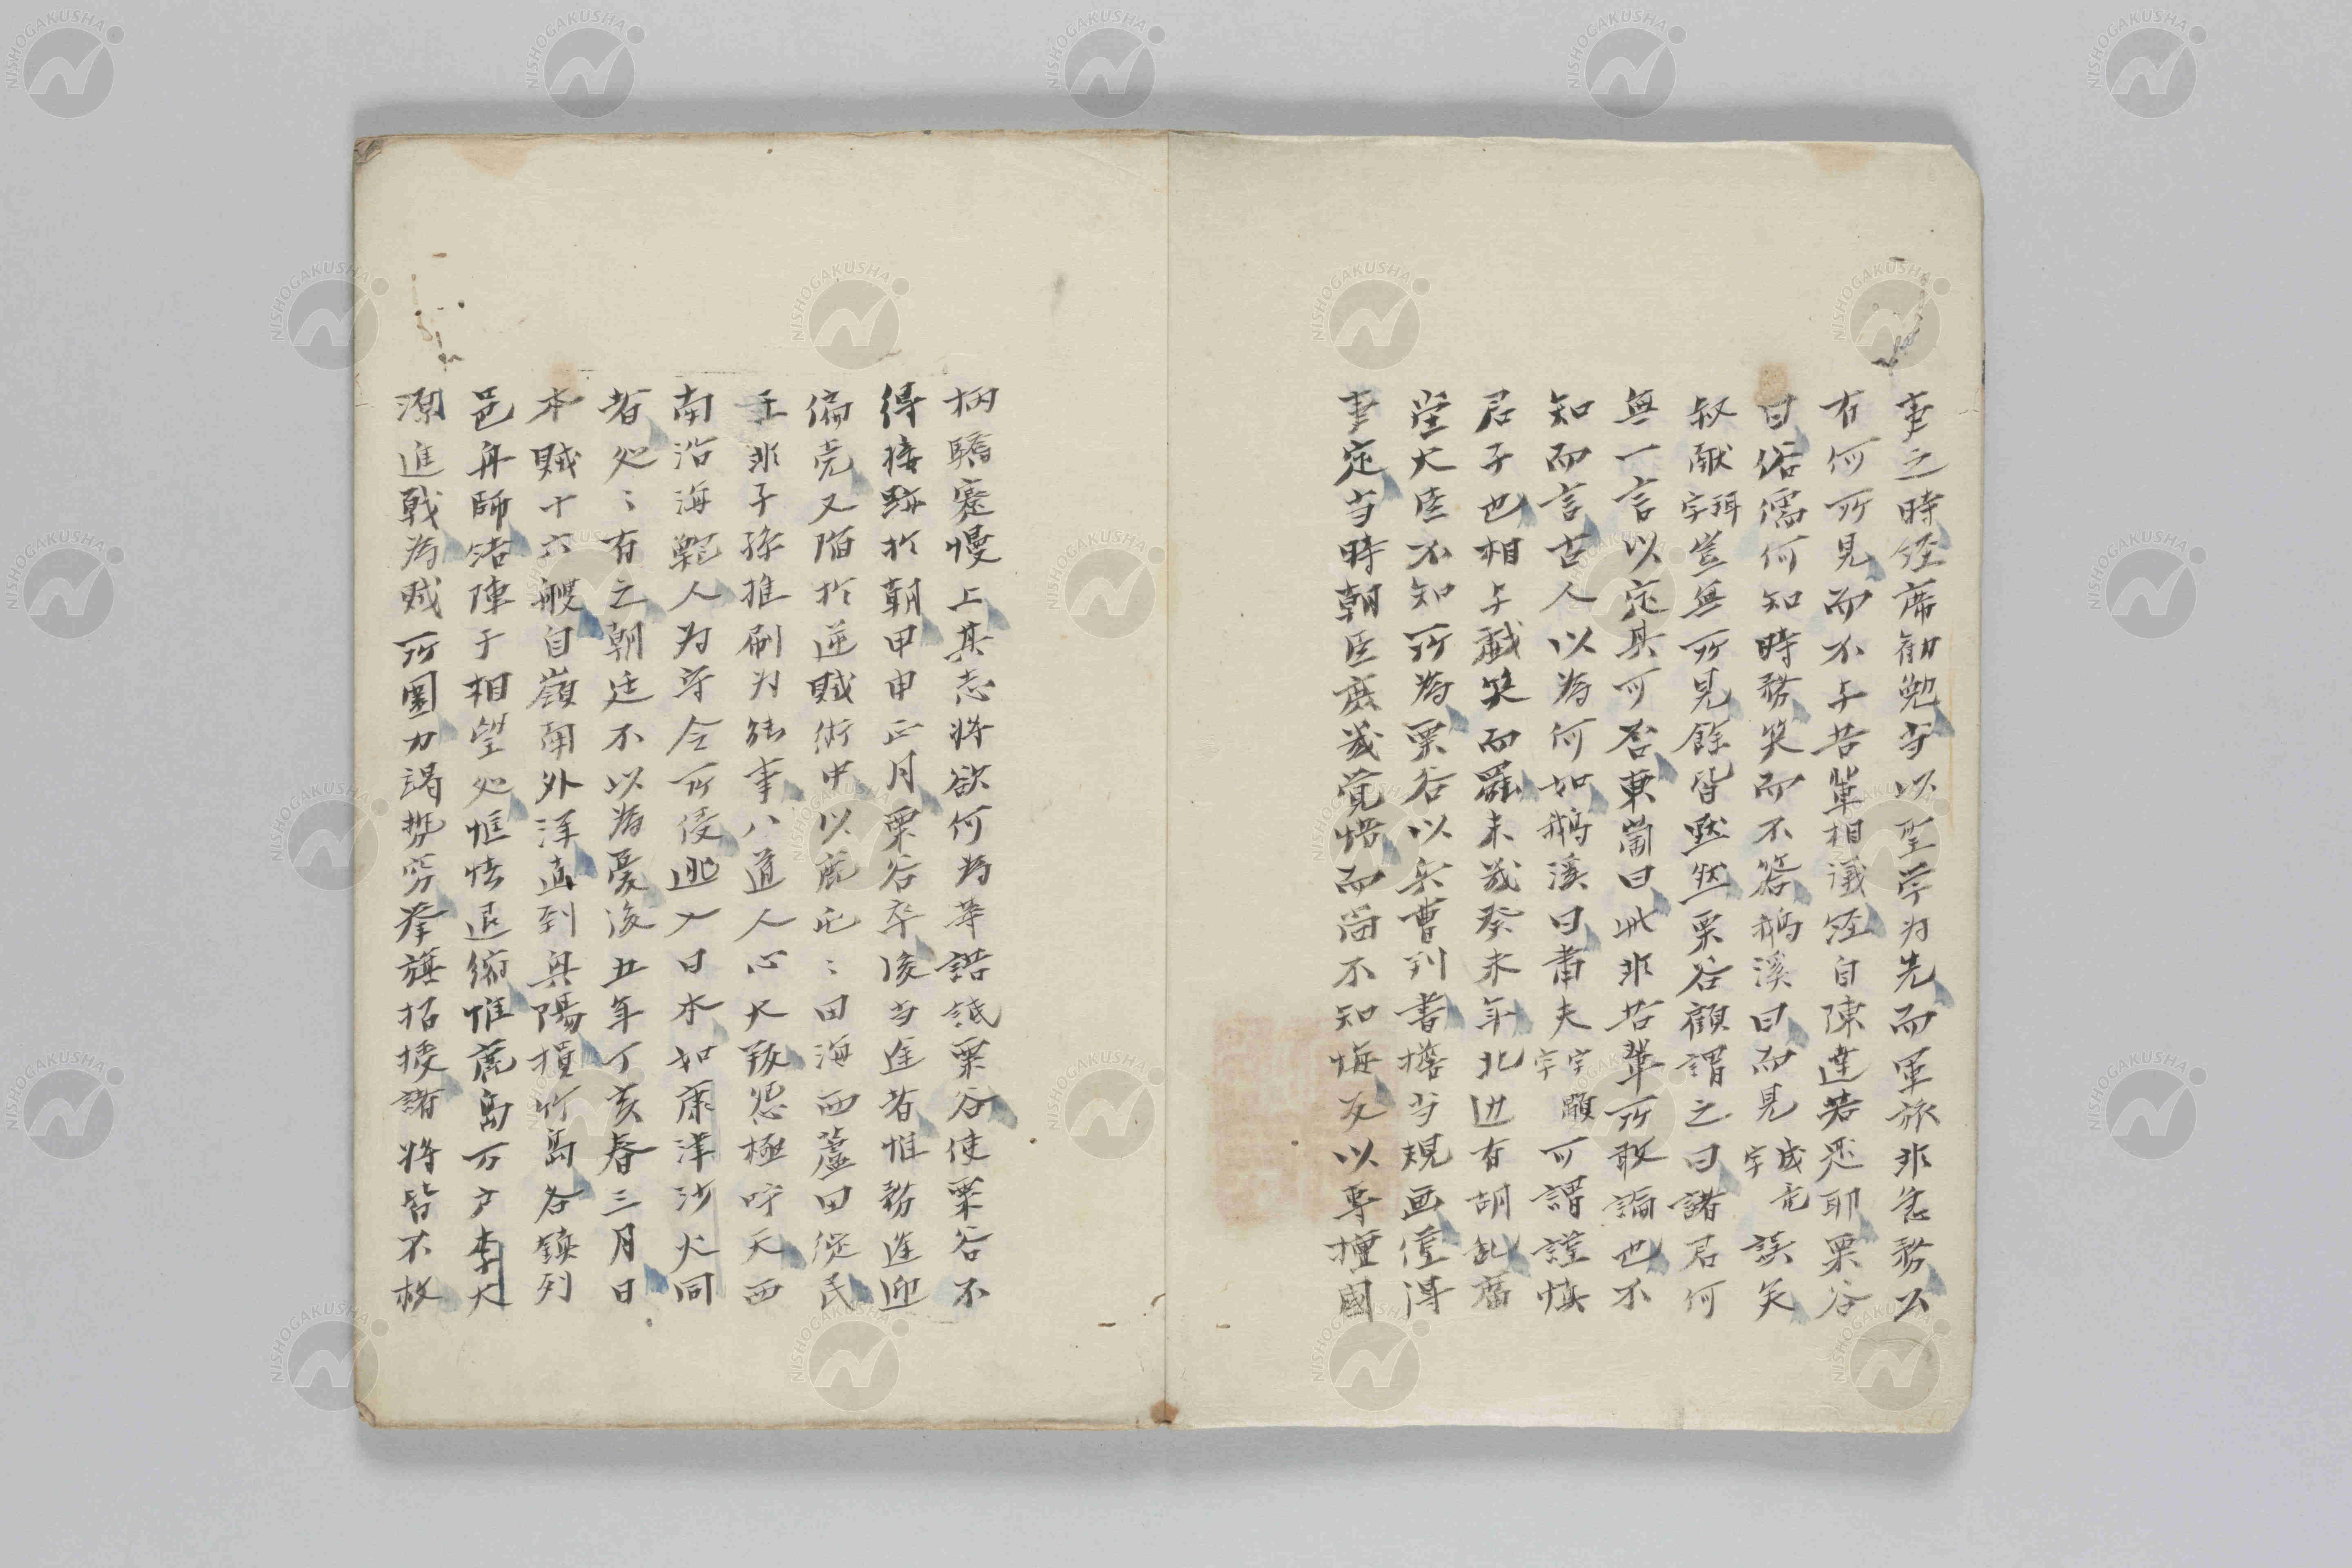 事之時経席勧勉当以聖学为先而軍旅非急務公
有何所見而不与若輩相議径自陳達若思耶栗谷
曰俗儒何知時務笑而不答鵝溪曰而見成竜字誤矣
叔献珥字豈無所見餘皆黙然栗谷顧謂之曰諸君何
無一言以定其可否東崗曰此非若輩所敢論也不
知而言古人以為何如鵝溪曰粛夫宇顒字可謂謹慎
君子也相与戯笑而罷未幾癸未年北辺有胡乱
堂大臣不知所為栗谷以兵曹判書擔当規画僅得
事定当時朝臣庶幾覚悟而尚不知悔反以専擅國
柄驕蹇慢上其志将欲何為等語詆栗谷使栗谷不
得接跡於朝甲申正月栗谷卒後当途者惟務逢迎
偏党又陥於逆賊術中以鹿屯〻田海西蘆田従民
王非子孫推刷为能事八道人心大叛怨極呼天西
南沿海郡人为牙令所侵逃入日本如康津沙火同
者処〻有之朝廷不以為憂後丑年丁亥春三月日
本賊十六艘自嶺南外洋直到興陽損竹島各鎮列
邑舟師結陣于相望処恇怯退縮惟鹿島万戸李大
源進戦為賊所圍力竭勢窮挙旗招援諸将皆不救